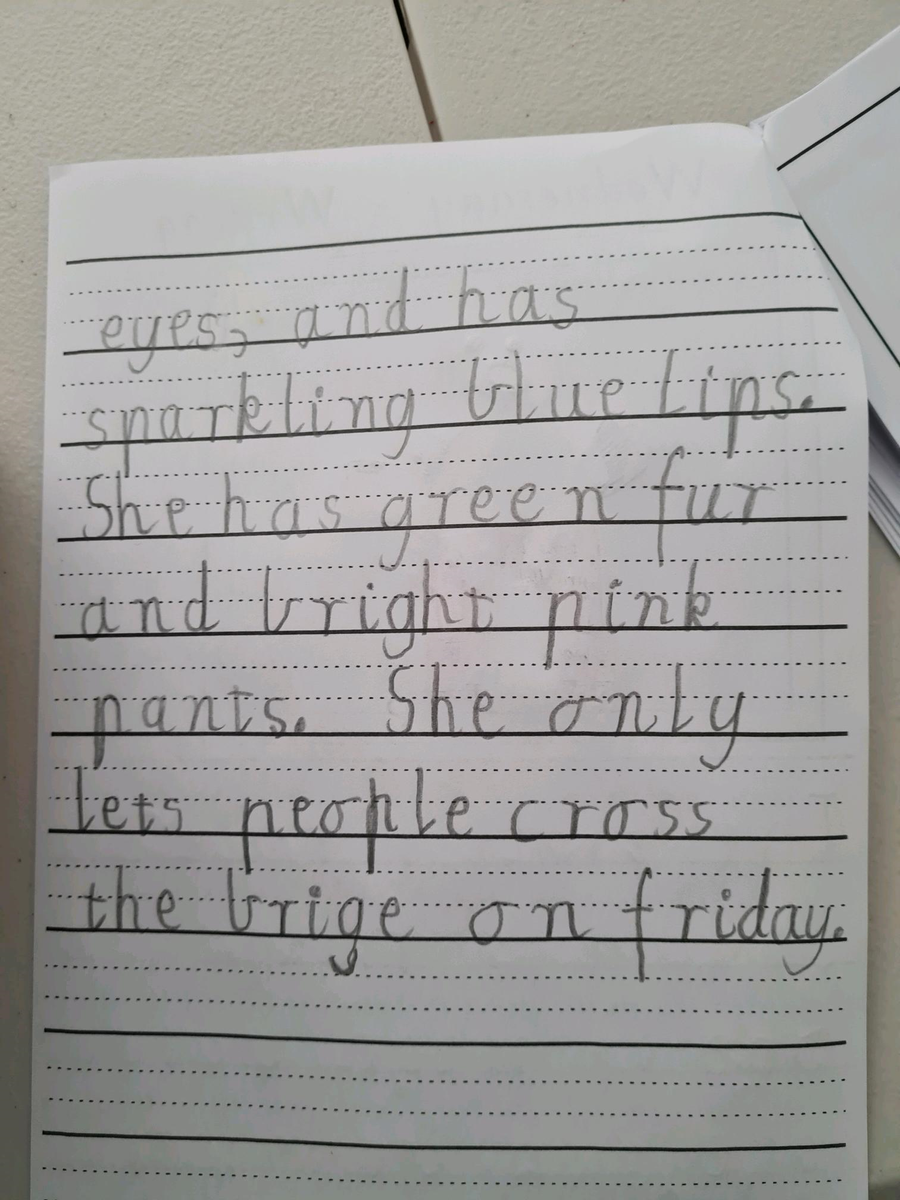 eyes, and has
sparkling blue lips.
She has green fur
and bright pink
pants. She only
lets people cross
the brige on friday.